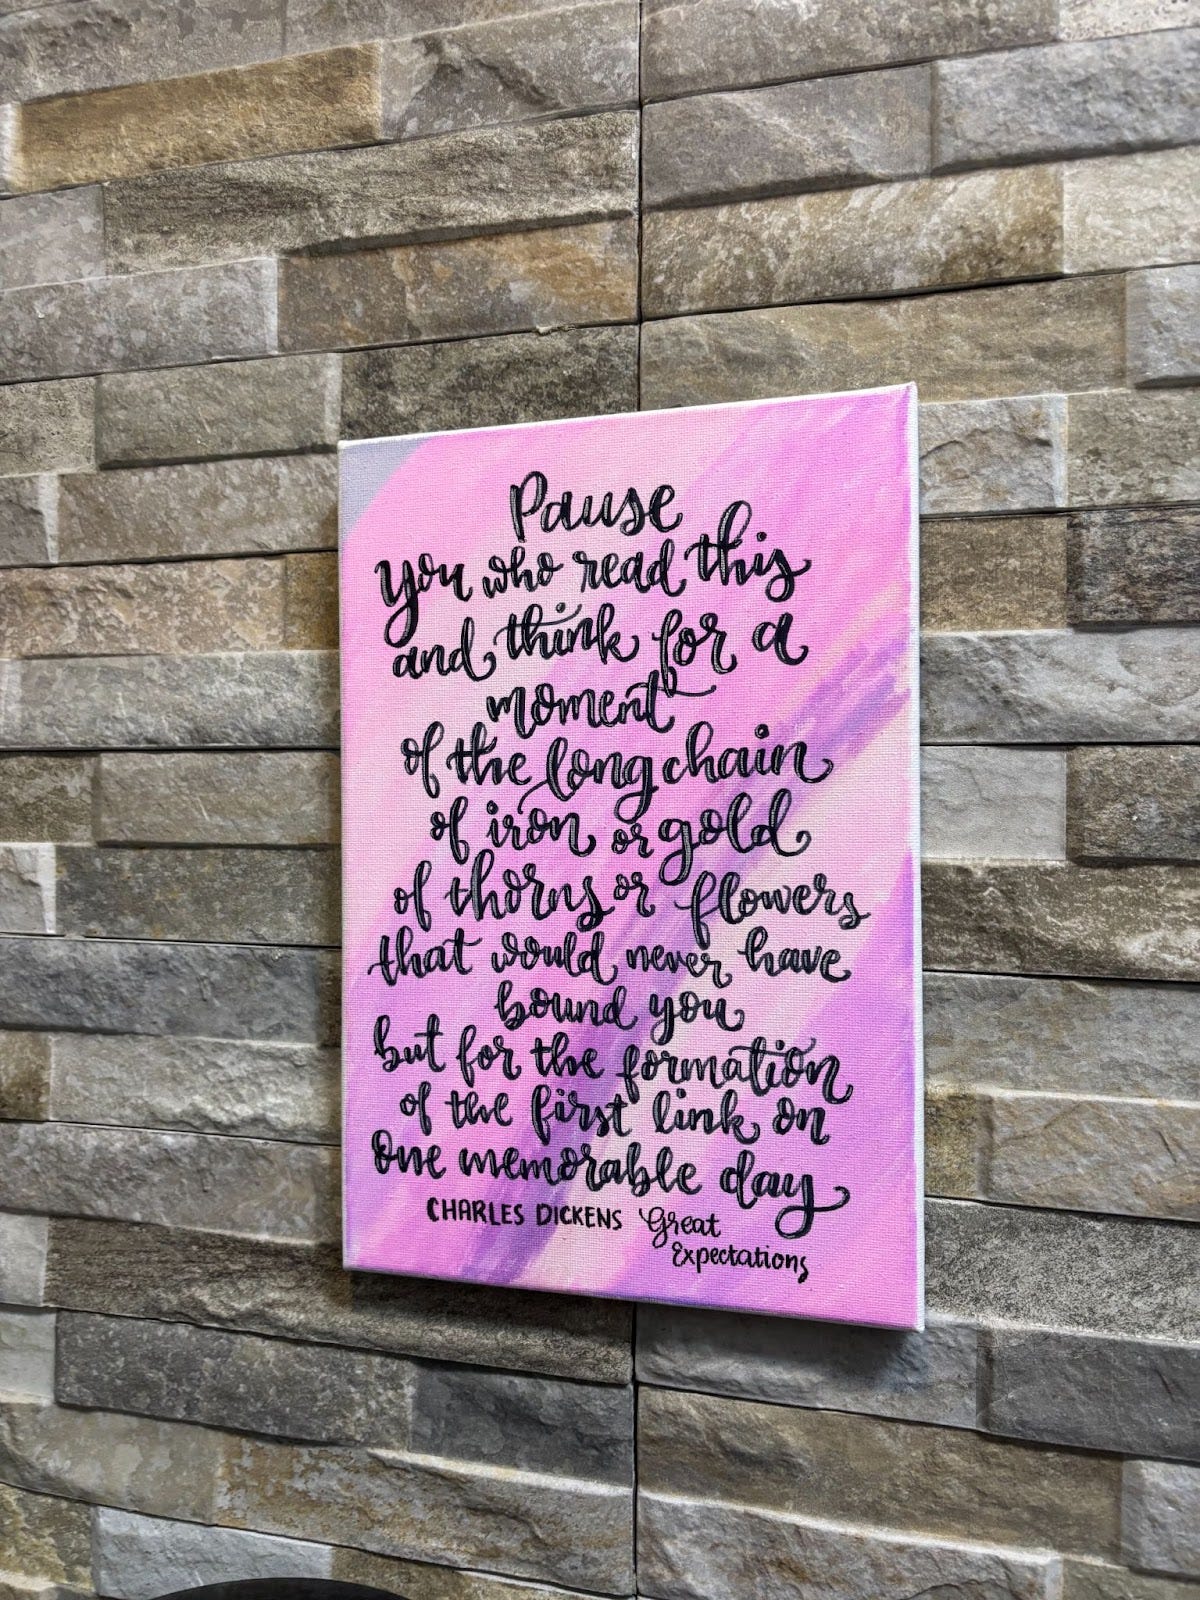 Pause
you who read this
and think for a
moment
of the long chain
of iron or gold
of thorns or flowers
that would never have
bound you
but for the formation
of the first link on
One memorable day
CHARLES DICKENS Great
Expectations